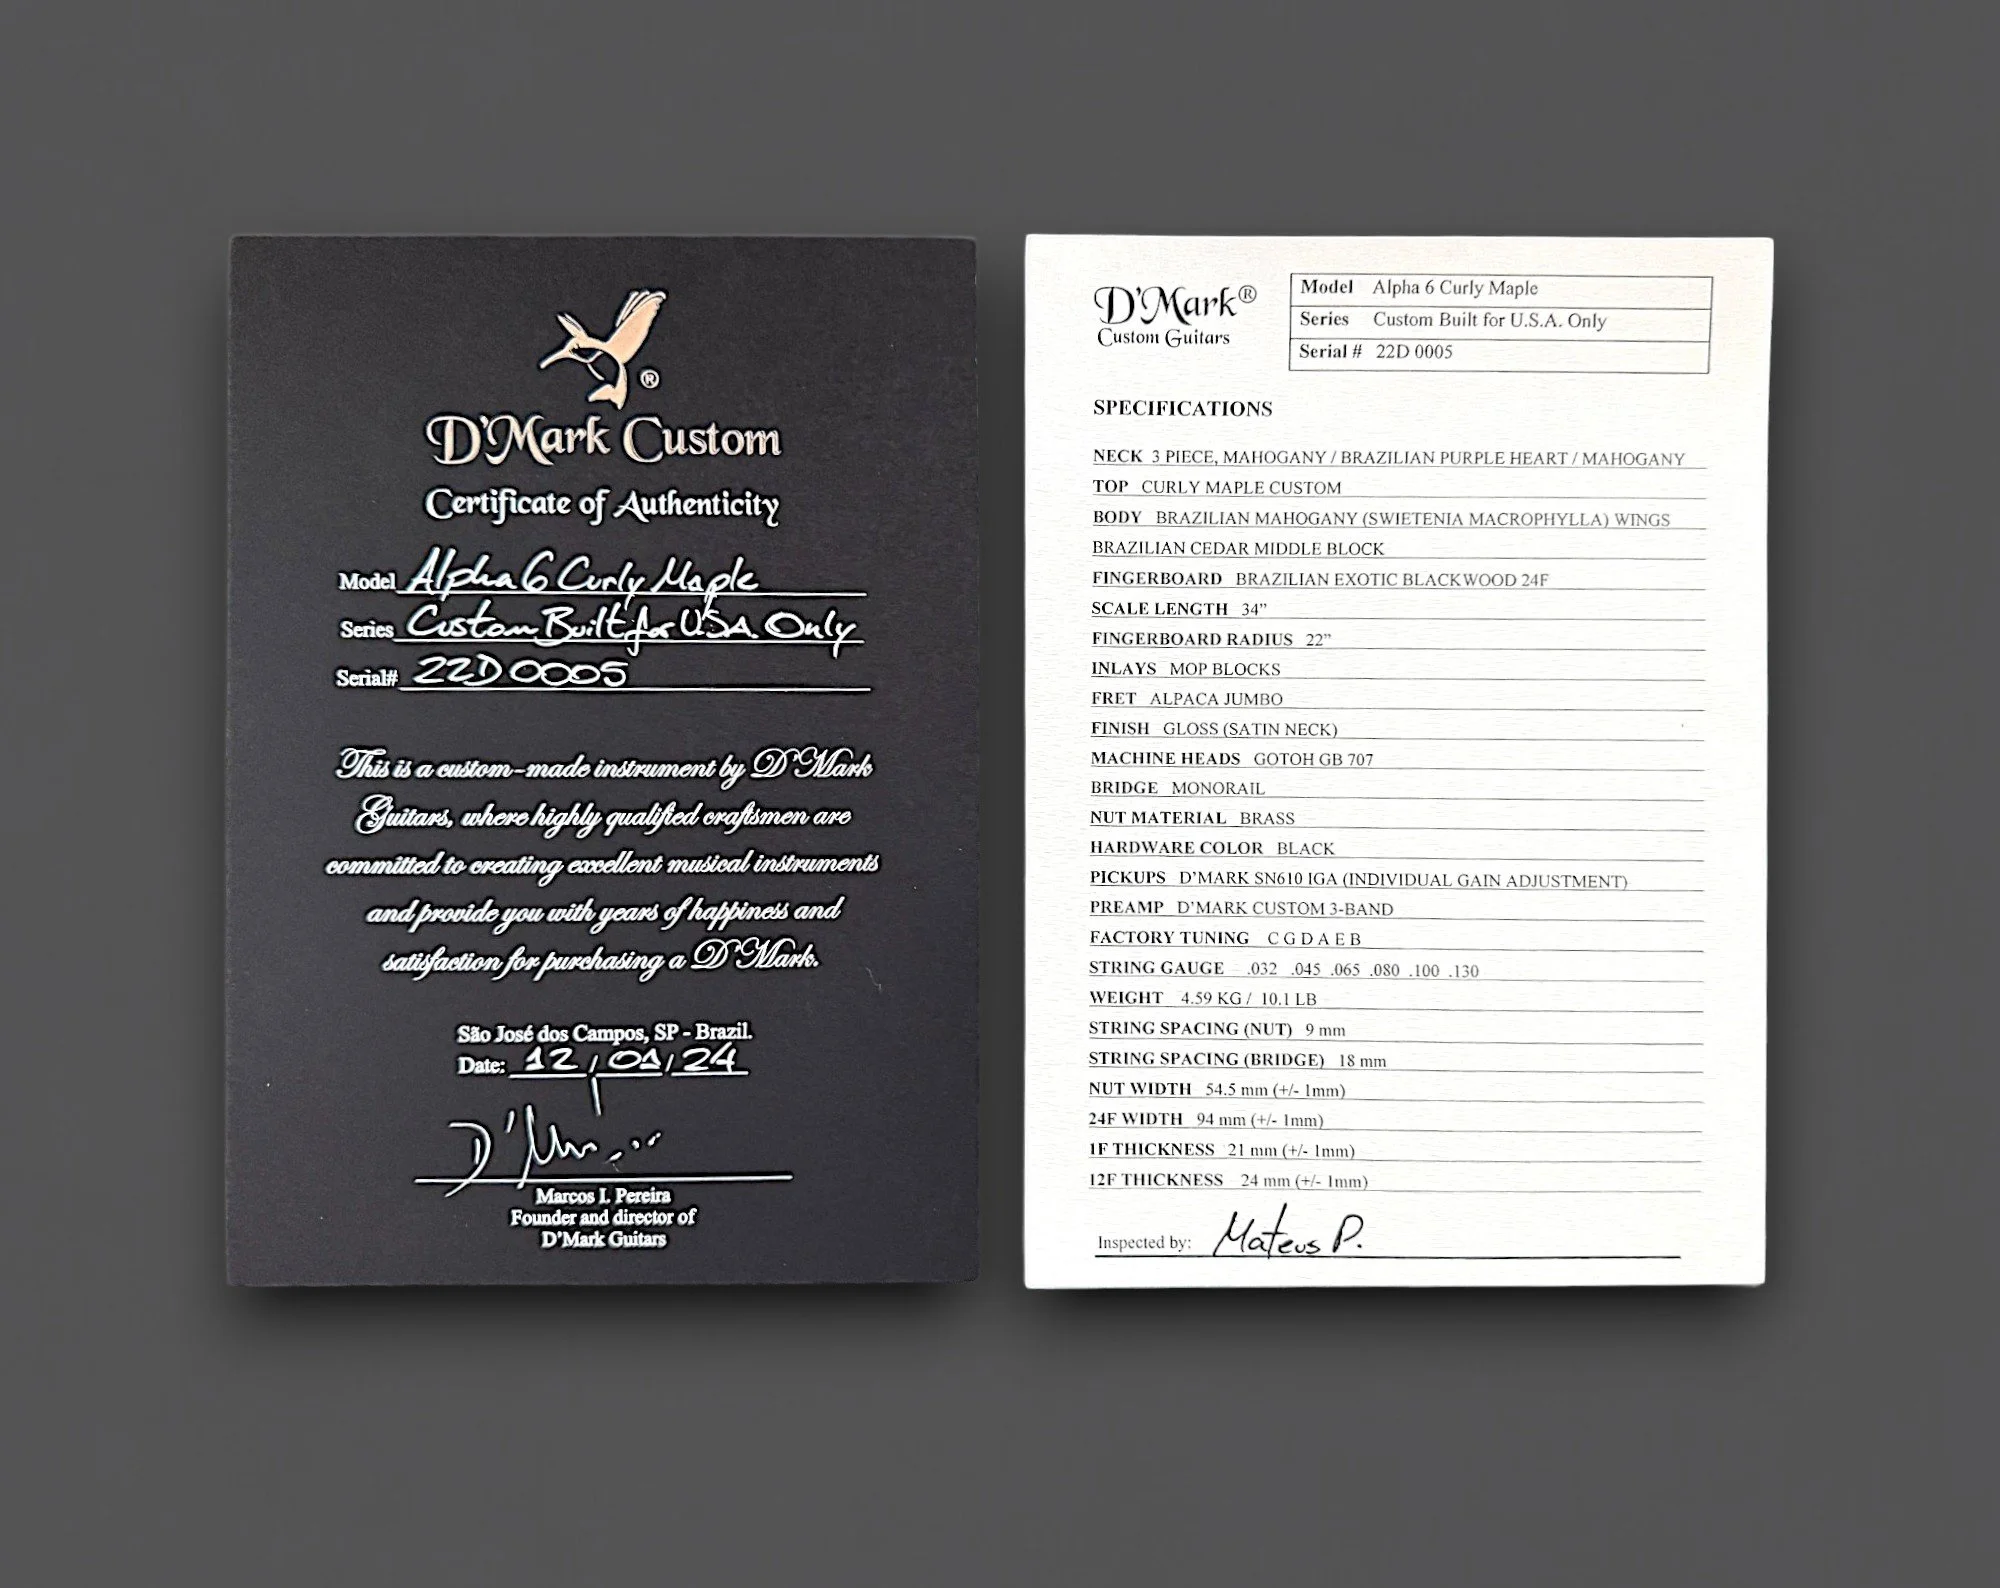 ®
D'Mark Custom
Certificate of Authenticity
Model Alpha 6 Curly Maple
Series Custom Built for USA. Only
Serial# 22D0005
This is a custom-made instrument by D'Mark
Guitars, where highly qualified craftsmen are
committed to creating excellent musical instruments
and provide you with years of happiness and
satisfaction for purchasing a D'Mark.
São José dos Campos, SP - Brazil.
Date: 12/01/24
Marcos I. Pereira
Founder and director of
D'Mark Guitars
D'Mark®
Custom Guitars
Model Alpha 6 Curly Maple
Series Custom Built for U.S.A. Only
Serial # 22D 0005
SPECIFICATIONS
NECK 3 PIECE, MAHOGANY / BRAZILIAN PURPLE HEART / MAHOGANY
TOP CURLY MAPLE CUSTOM
BODY BRAZILIAN MAHOGANY (SWIETENIA MACROPHYLLA) WINGS
BRAZILIAN CEDAR MIDDLE BLOCK
FINGERBOARD BRAZILIAN EXOTIC BLACKWOOD 24F
SCALE LENGTH 34”
FINGERBOARD RADIUS 22”
INLAYS MOP BLOCKS
FRET ALPACA JUMBO
FINISH GLOSS (SATIN NECK)
MACHINE HEADS GOTOH GB 707
BRIDGE MONORAIL
NUT MATERIAL BRASS
HARDWARE COLOR BLACK
PICKUPS D'MARK SN610 IGA (INDIVIDUAL GAIN ADJUSTMENT)
PREAMP D'MARK CUSTOM 3-BAND
FACTORY TUNING C G D A E B
STRING GAUGE .032 .045 .065 .080 .100 .130
WEIGHT 4.59 KG / 10.1 LB
STRING SPACING (NUT) 9 mm
STRING SPACING (BRIDGE) 18 mm
NUT WIDTH 54.5 mm (+/- 1mm)
24F WIDTH 94 mm (+/- 1mm)
1F THICKNESS 21 mm (+/- 1mm)
12F THICKNESS 24 mm (+/- 1mm)
Inspected by: Mateus P.